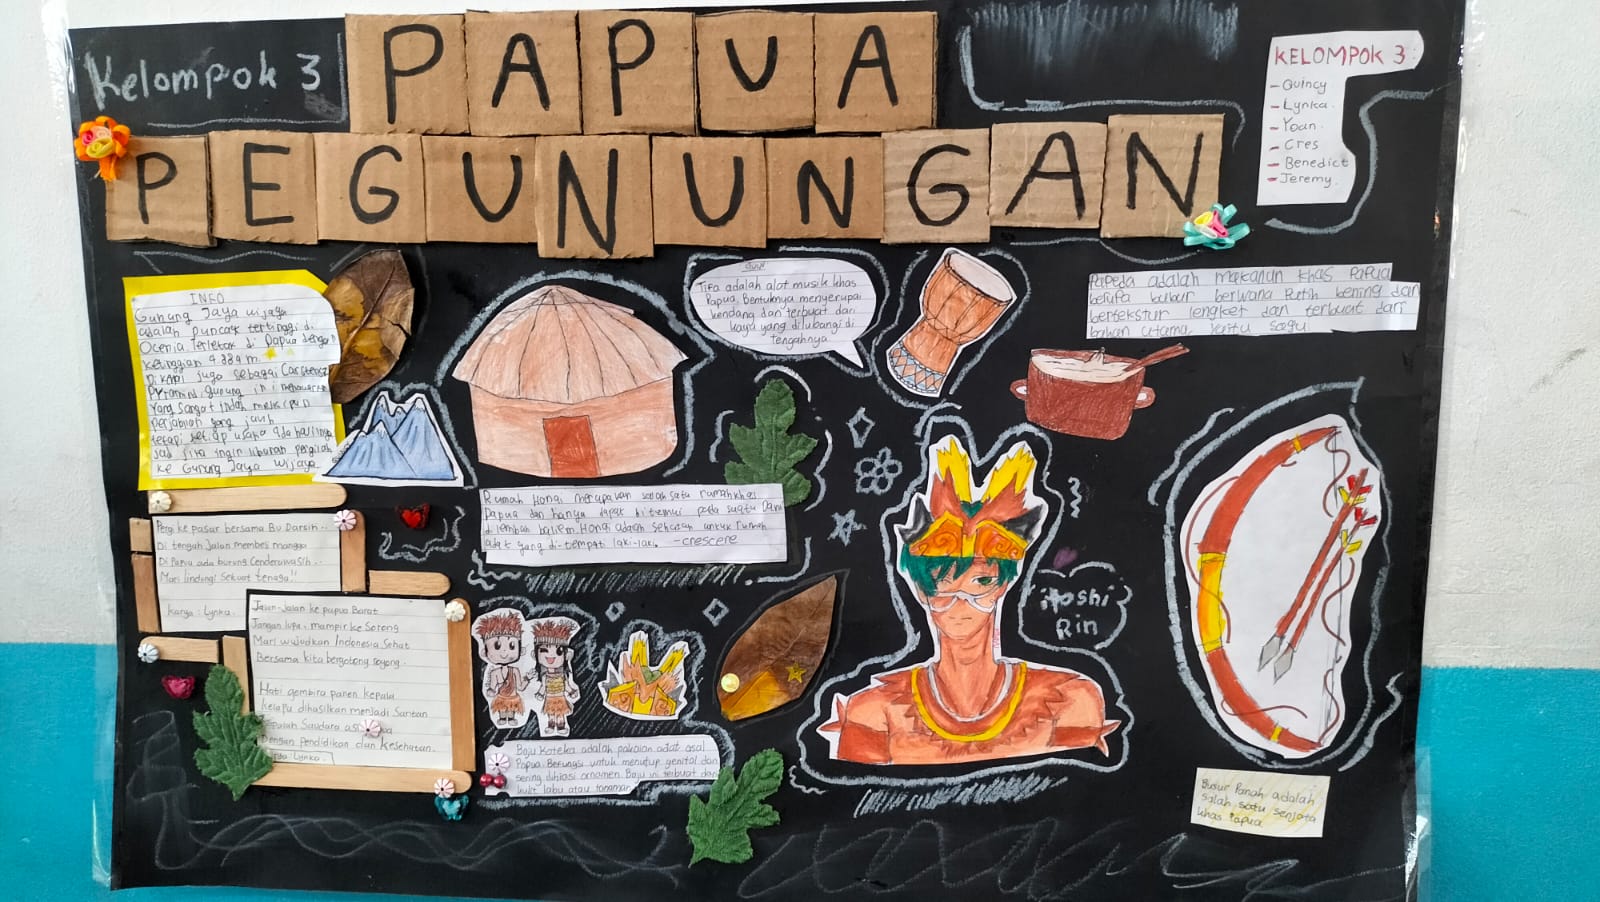 Kelompok 3
PAPUA
PEGUNUNGAN
KELOMPOK 3:
- Quincy
- Lynka.
- Yoan.
- Cres
- Benedict
- Jeremy.
INFO
Gunung Jaya wijaya
adalah puncak tertinggi di
Ocenia. Terletak di Papua dengan
ketinggian 4.884 m.
Dikenal juga sebagai Carstensz
Pyramid gunung ini menawarkan
Yang sangat indah meskipun
perjabuah yang jauh
tetapi setiap usaha ada hasilnya
Jadi jika ingin liburan pergilah
ke Gunung Jaya wijaya
Tifa adalah alat musik khas
Papua, Bentuknya menyerupai
kendang dan terbuat dari
kayu yang dilubangi di
tengahnya
Papeda adalah makanan khas Papua
berupa bubur berwana Putih bening dan
bertekstur lengket dan terbuat dari
bahan utama yaitu sagu
Rumah Honai merupakan salah satu rumah khas
Papua dan hanya dapat ditemui pada suatu Dani
di lembah baliem. Honai adalah sebutan untuk rumah
adat yang di-tempati laki-laki. -crescere
Pergi ke pasar bersama Bu Darsih..
Di tengah Jalan membeli mangga
Di Papua ada burung Cenderawasih..
Mari lindungi Sekuat tenaga!!
Karya: Lynka.
Jalan-Jalan ke papua Barat
Jangan lupa, mampir ke Sorong
Mari wujudkan Indonesia Sehat
Bersama kita bergotong royong..
Hati gembira panen kepala
Kelapa dihasilkan menjadi Santan
Saudara
Dengan pendidikan dan kesehatan.
Lynka.
Baju Koteka adalah pakaian adat asal
Papua. Berfungsi untuk menutup genital dan
sering dihiasi ornamen. Baju ini terbuat dari
kulit labu atau tanaman
itoshi
Rin
Busur Panah adalah
salah satu senjata
khas Papua